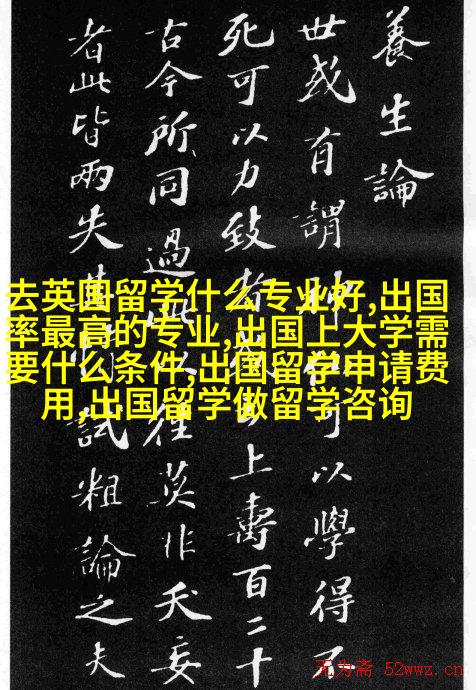 養生論
世或有謂可以學得不
死可以力致者云上壽百二十
古今所同過此以往莫非夭妄
者此皆兩失其試粗論之夫
去英国留学什么专业好,出国
率最高的专业,出国上大学需
要什么条件,出国留学申请费
用,出国留学做留学咨询
无为斋 52wwz.cn